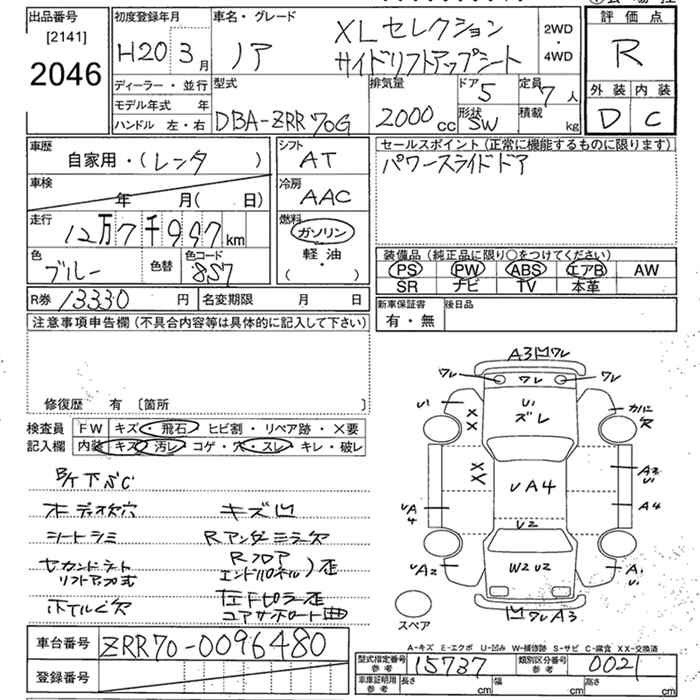 出品番号
[2141]
2046
初度登録年月
H20 3月
車名・グレード
ノア
XLセレクション
サイドリフトアップシート
2WD
・
4WD
評価点
R
外装 内装
D C
ディーラー・並行
モデル年式 年
ハンドル 左・右
型式
DBA-ZRR70G
排気量
2000cc
ドア
5
形状
SW
定員
7人
積載
kg
車歴
自家用・(レンタ )
車検
年 月( 日)
走行
12万7千997km
色
ブルー
色替
色コード
8S7
R券 13330 円
名変期限 月 日
シフト
AT
冷房
AAC
燃料
ガソリン
・
軽・油
( )
セールスポイント(正常に機能するものに限ります)
パワースライドドア
装備品(純正品に限り○をつけてください)
PS PW ABS エアB AW
SR ナビ TV 本革
新車保証書
有・無
後日品
注意事項申告欄(不具合内容等は具体的に記入して下さい)
修復歴 有 〔箇所 〕
検査員
記入欄
FW キズ・飛石・ヒビ割・リペア跡・X要
内装 キズ・汚レ・コゲ・穴・スレ・キレ・破レ
シートシミ
キズ凹
Rアンダーミラー欠
Rフロア
エンドパネル)歪
セカンドシート
左Eピラー歪
コアサポート曲
車台番号 ZRR70-0096480
登録番号
A3凹ワレ
ワレ ワレ ワレ
U1
ズレ
U1
XX
XX
UA4
U2
W2 U2
UA
4
UA2
A2
U1
A4
A1
U1
凹ワレA3
スペア
A-キズ E-エクボ U-凹み W-補修跡 S-サビ C-腐食 XX-交換済
型式指定番号
参考
15737
類別区分番号
参考
0021
車庫証明用
参考
長さ cm
幅 cm
高さ cm